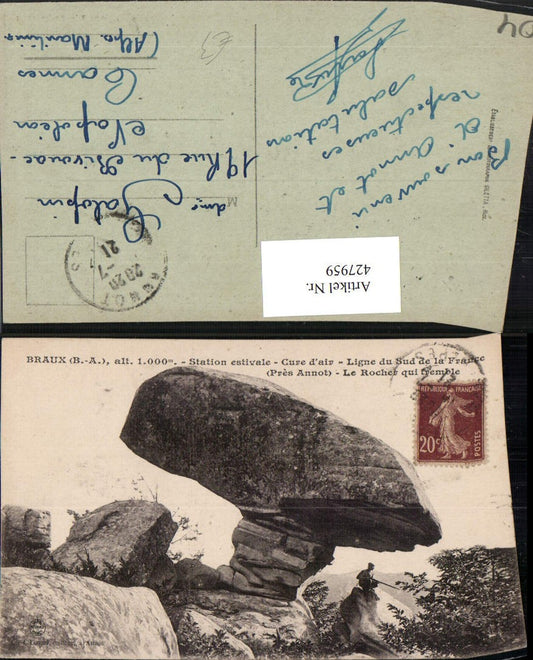 04
£3
Bon souvenir
d'Annot et
respectueuses
salutations
M
dame Galopin
19 Rue du Bivouac-
Napoléon
Cannes
(Alpes Maritimes
ANNOT
21
Artikel Nr.
427959
BRAUX (B.-A.), alt. 1.000m. - Station estivale - Cure d'air - Ligne du Sud de la France
(Près Annot) - Le Rocher qui tremble
RÉPUBLIQUE FRANÇAISE
20c
POSTES